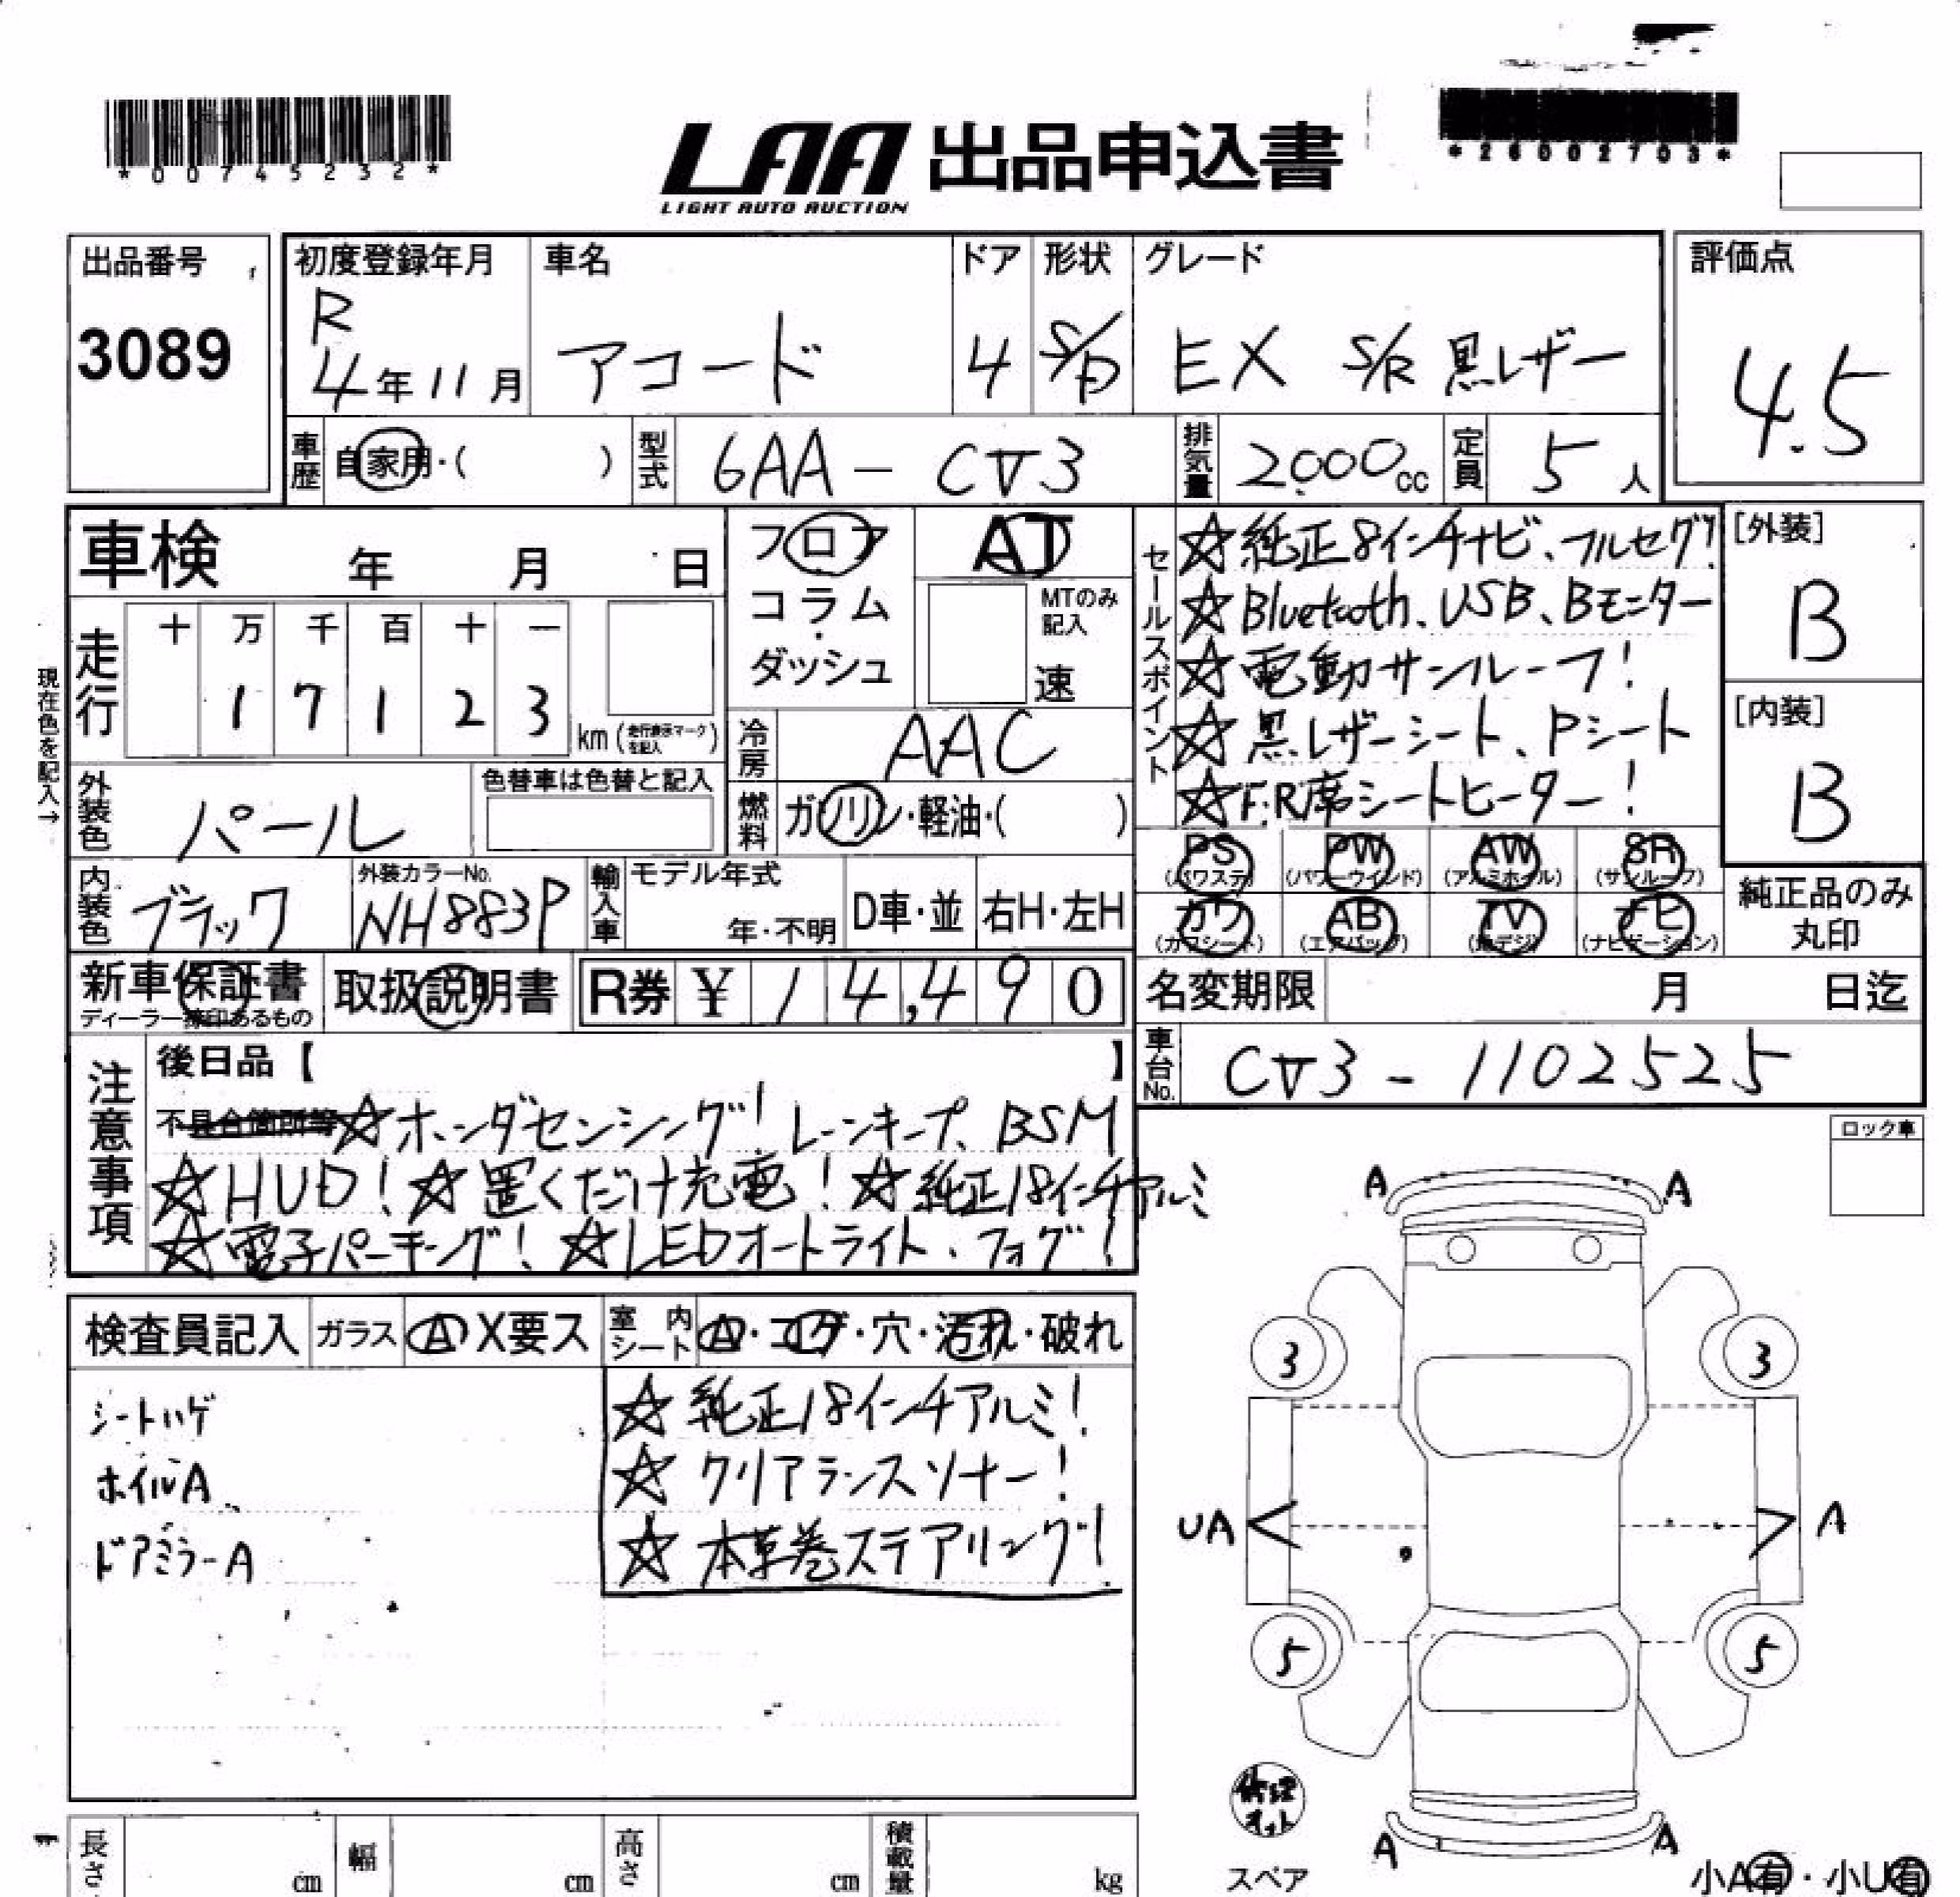 *00745232*
LAA 出品申込書
LIGHT AUTO AUCTION
*26002703*
出品番号
3089
初度登録年月
R
4年11月
車名
アコード
ドア
4
形状
S/D
グレード
EX S/R 黒レザー
評価点
4.5
車歴
自家用・( )
型式
6AA - CV3
排気量
2.000cc
定員
5人
車検 年 月 日
フロア
コラム
・
ダッシュ
AT
MTのみ
記入
速
セールスポイント
☆純正8インチナビ、フルセグ!
☆Bluetooth、USB、Bモニター
☆電動サンルーフ!
☆黒レザーシート、Pシート
☆F.R席シートヒーター!
[外装]
B
[内装]
B
現在色を記入→
走行
十 万 千 百 十 一
1 7 1 2 3
km(走行表示マークを記入)
冷房
AAC
外装色
パール
色替車は色替と記入
燃料
ガソリン・軽油・( )
PS
(パワステ)
PW
(パワーウインド)
AW
(アルミホイル)
SR
(サンルーフ)
カワ
(カワシート)
AB
(エアバッグ)
TV
(地デジ)
ナビ
(ナビゲーション)
純正品のみ
丸印
内装色
ブラック
外装カラーNo.
NH883P
輸入車
モデル年式
年・不明
D車・並
右H・左H
新車保証書
ディーラー捺印あるもの
取扱説明書
R券 ¥ 14,490
名変期限 月 日迄
車台No.
CV3 - 1102525
注意事項
後日品【 】
不具合箇所等
☆ホンダセンシング! レーンキープ、BSM
☆HUD!☆置くだけ充電!☆純正18インチアルミ
☆電子パーキング!☆LEDオートライト、フォグ!
ロック車
検査員記入
ガラス
A X要ス
室内
シート
A・コゲ・穴・汚れ・破れ
シートハゲ
ホイルA
ドアミラーA
☆純正18インチアルミ!
☆クリアランスソナー!
☆本革巻ステアリング!
A A
3 3
UA A
5 5
修理キット
A A
スペア
小A有・小U有
長さ cm
幅 cm
高さ cm
積載量 kg